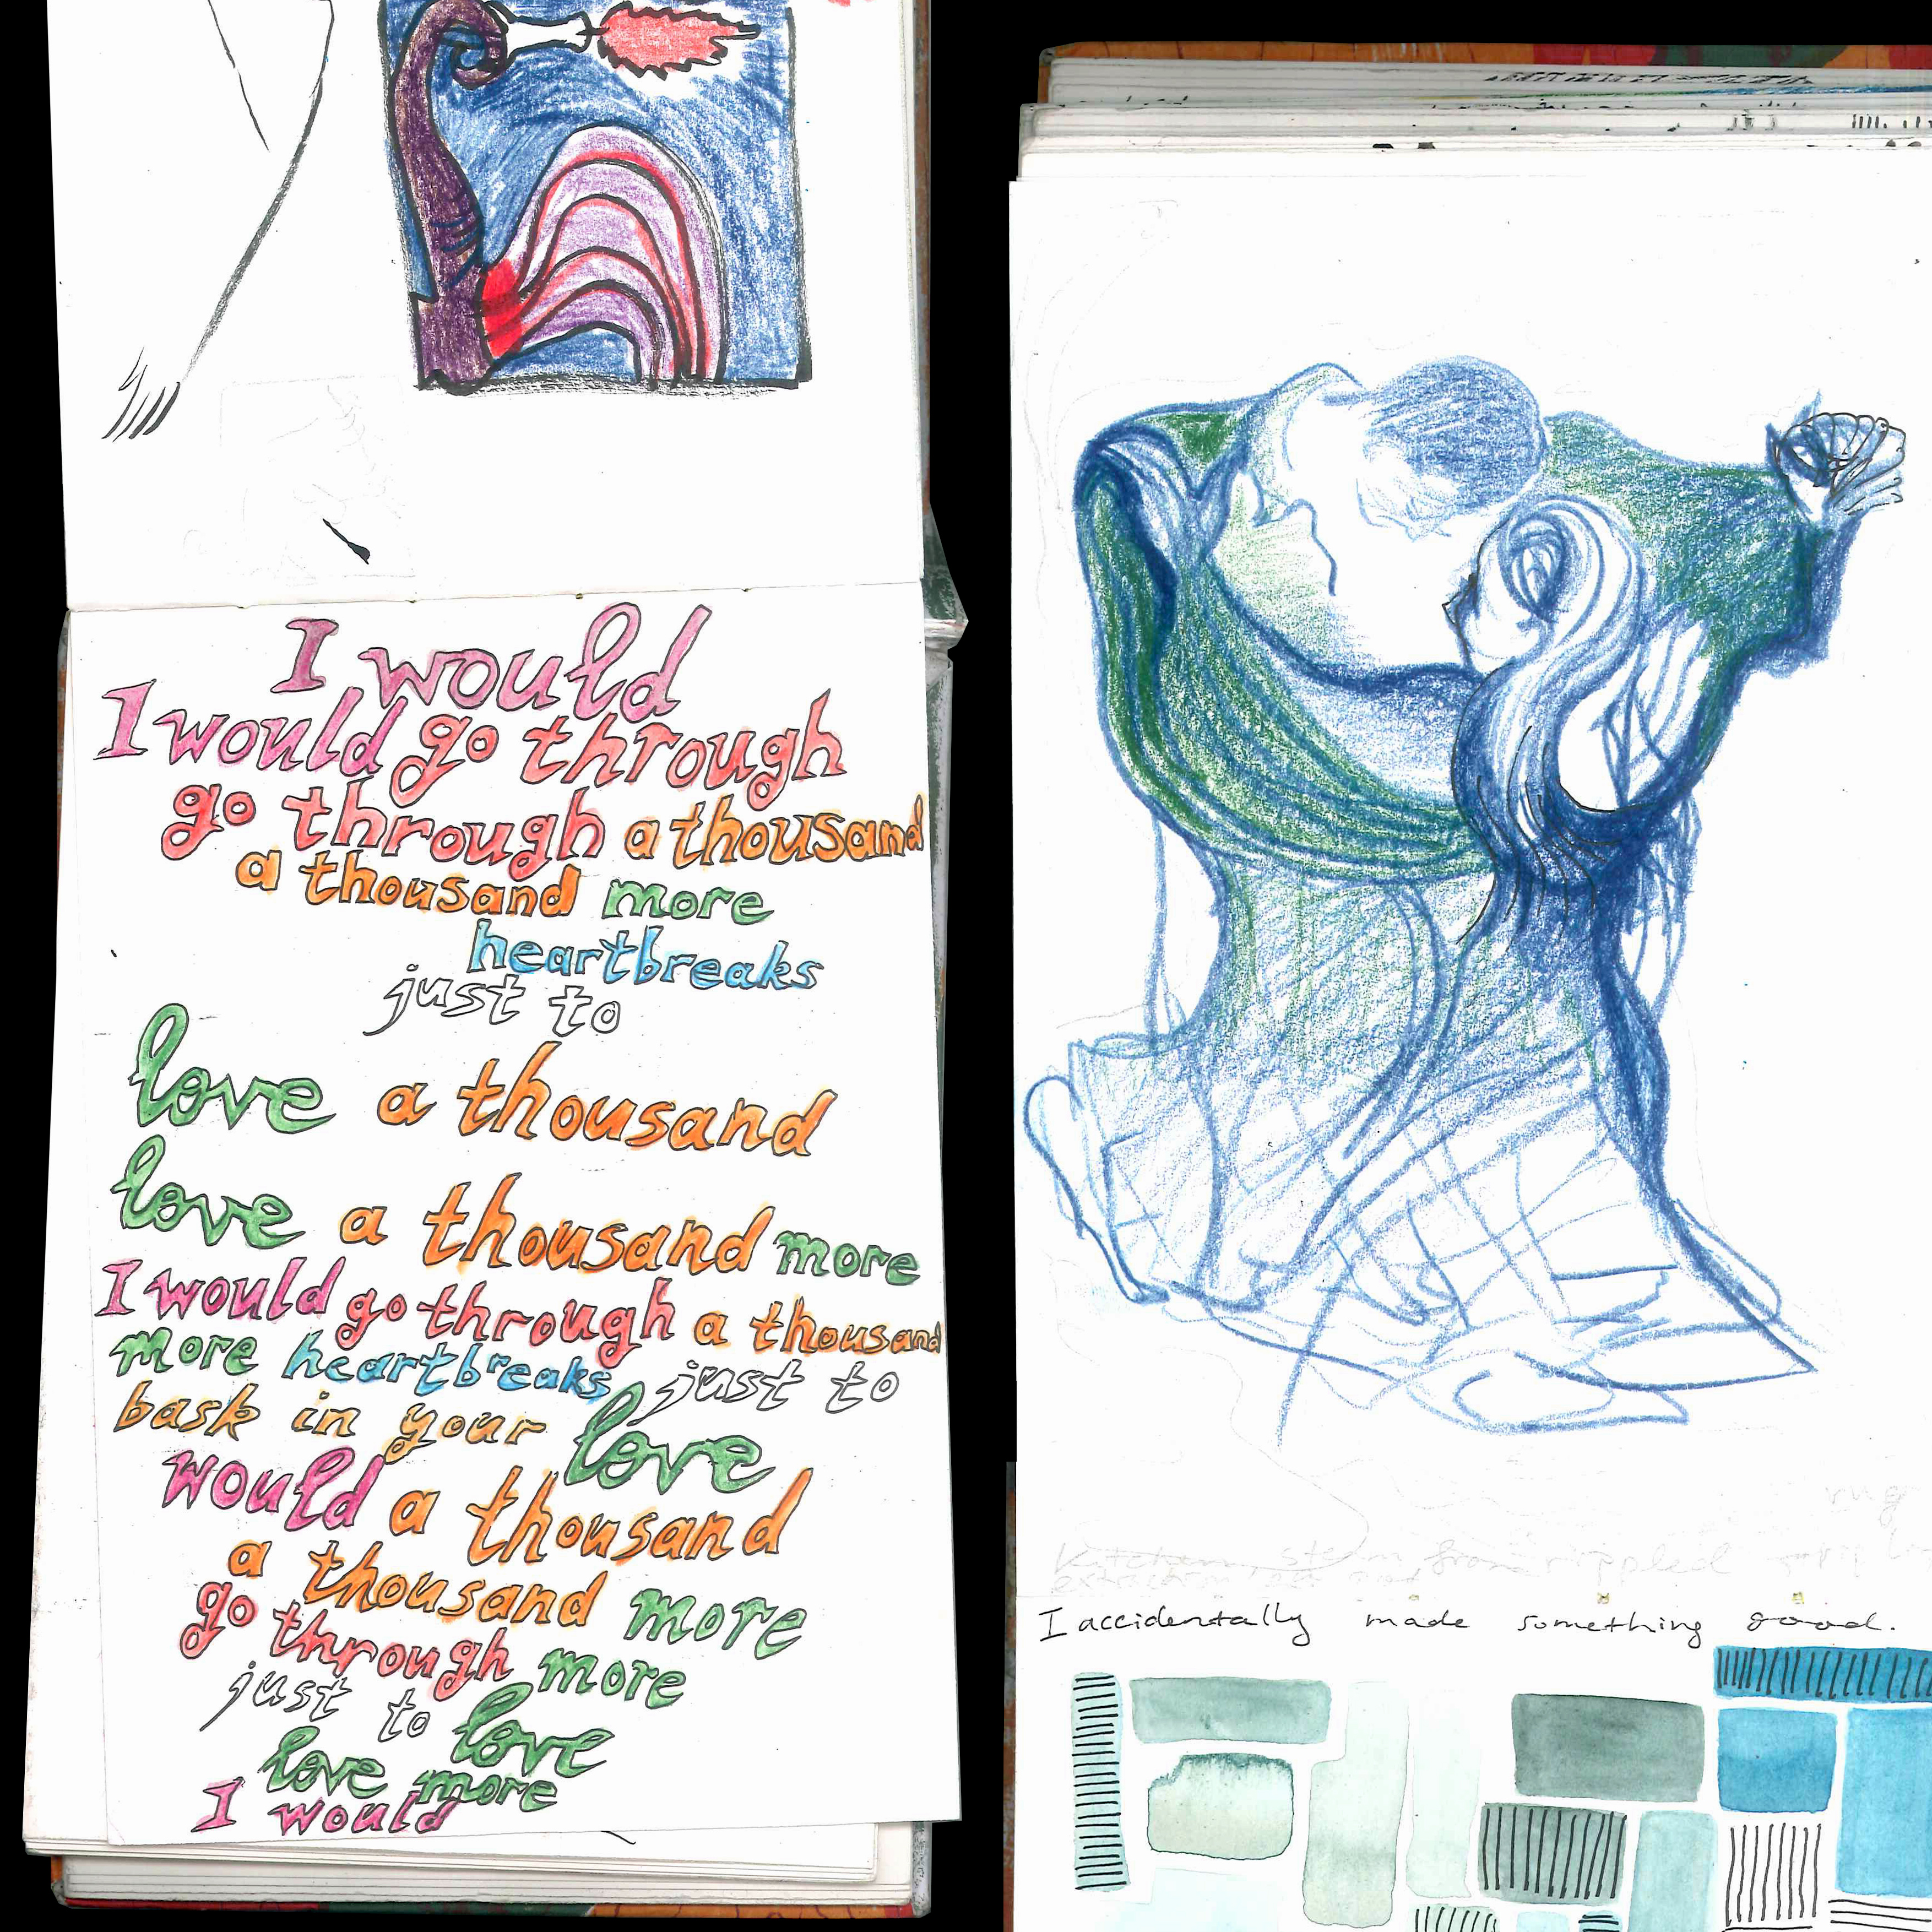 I would
I would go through
go through a thousand
a thousand more
heartbreaks
just to
love a thousand
love a thousand more
I would go through a thousand
more heartbreaks just to
bask in your love
would a thousand
a thousand more
go through more
just to love
love more
I would
rug
Kitchen, stem from rippled
I accidentally made something good.